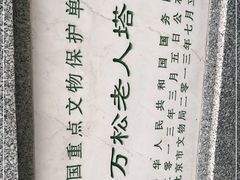 国重点文物保护单
万松老人塔
华人民共和国国务
二〇一三年三月五日公
北京市文物局二〇一三年七月立